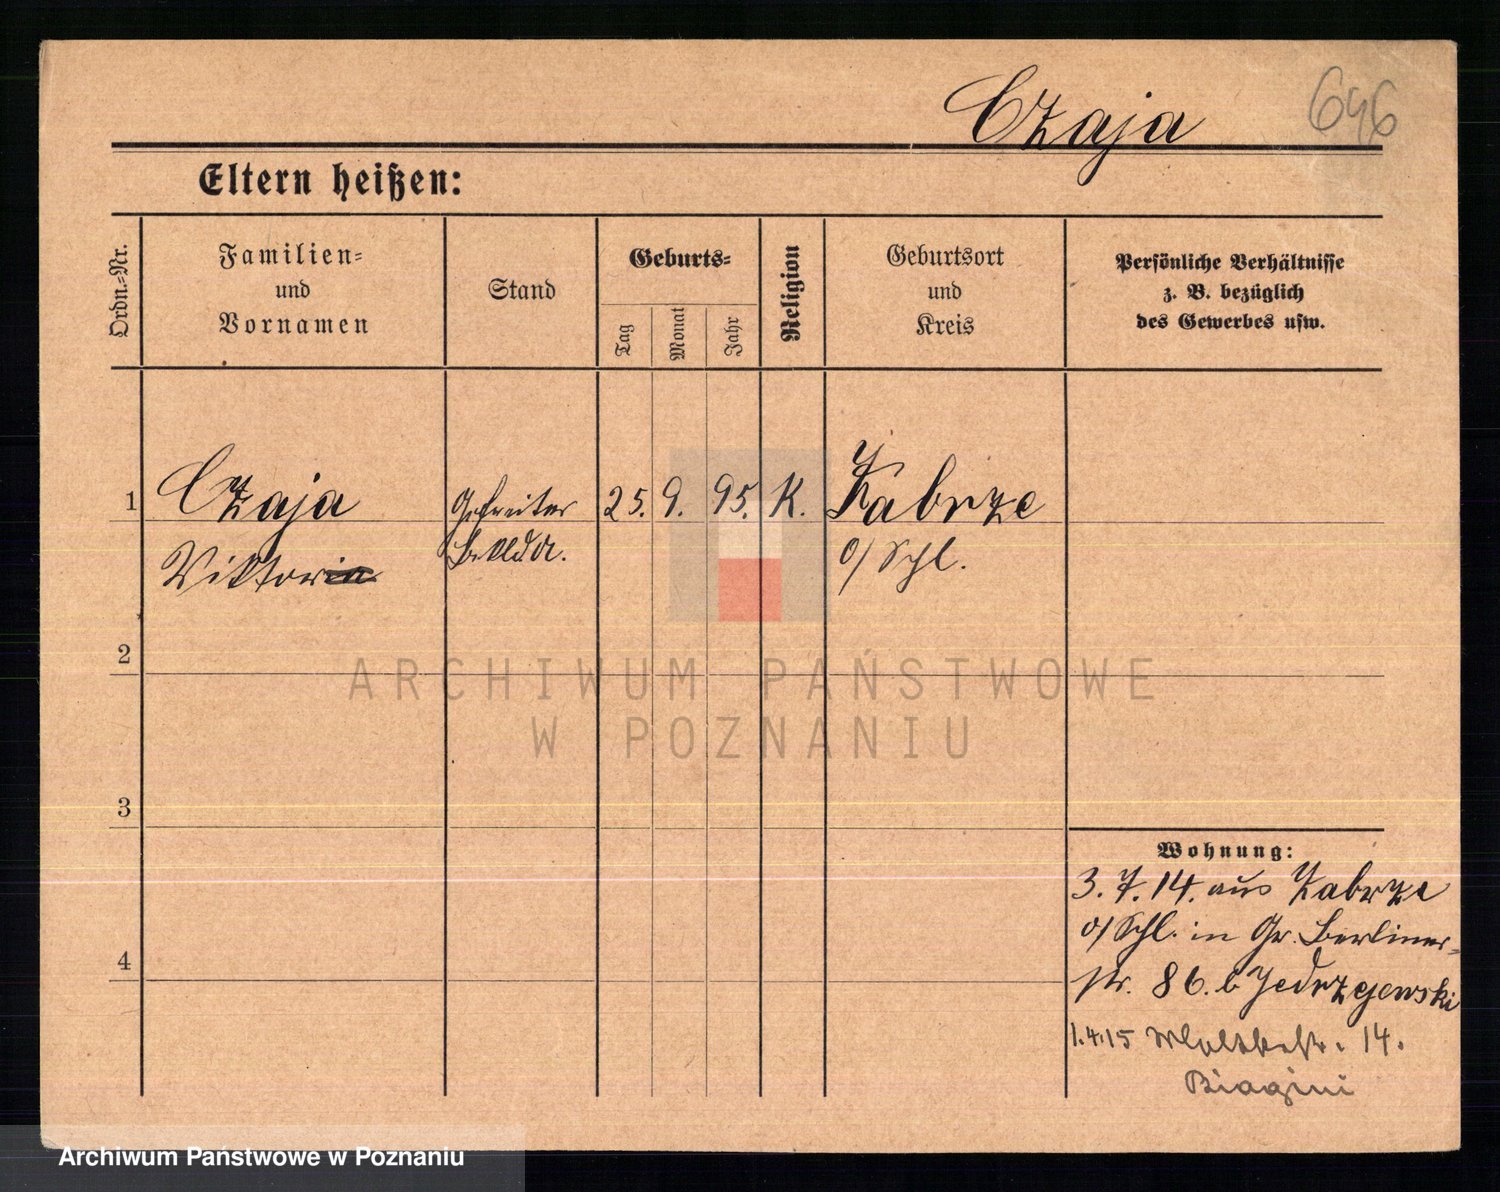 Czaja
646
Eltern heißen:
Ordn.-Nr.
Familien-
und
Vornamen
Stand
Geburts-
Tag
Monat
Jahr
Religion
Geburtsort
und
Kreis
Persönliche Verhältnisse
z. B. bezüglich
des Gewerbes usw.
1
Czaja
Gefreiter
25. 9. 95. K.
Zabrze
Viktor
o/Schl.
2
ARCHIWUM PAŃSTWOWE
W POZNANIU
3
Wohnung:
3.7.14. aus Zabrze
o/Schl. in Gr. Berliner-
str. 86. b Jedrzejewski
4
1.4.15 Moltkestr. 14.
Biagini
Archiwum Państwowe w Poznaniu